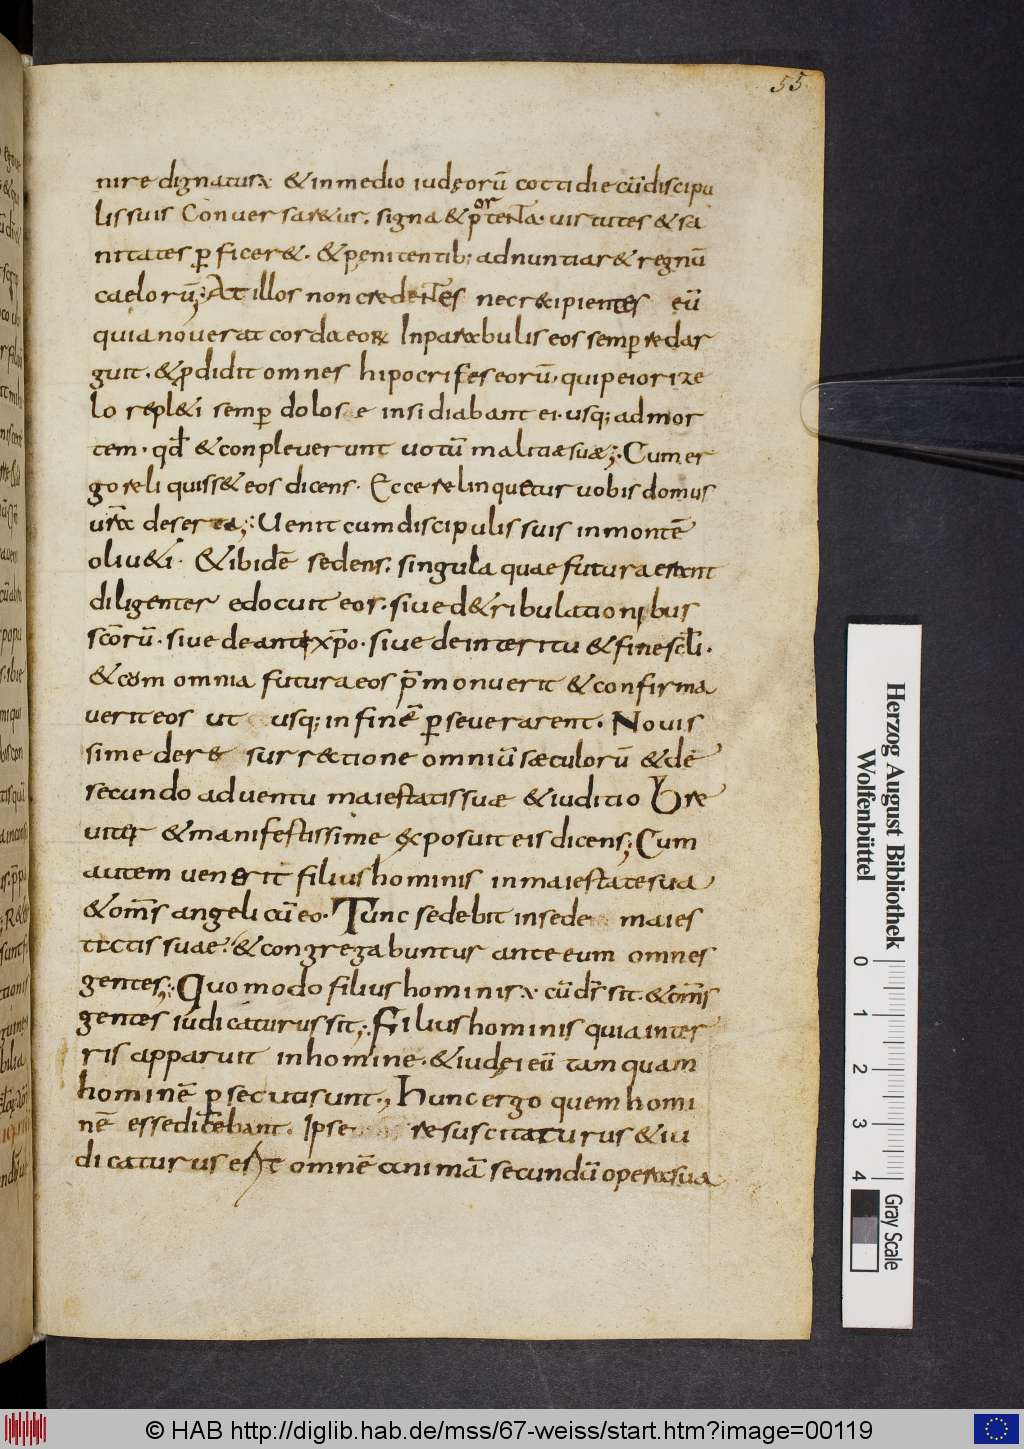 55
nire dignatur & in medio iudęorũ cottidie cũ discipu
lis suis Conuersar&ur. signa & portenta. uirtutes & sa
nitates ꝑficer&. & penitentib; adnuntiar& regnũ
caelorũ; At illos non credentes nec r&ipientes eũ
quia nouerat corda eoꝝ In parabulis eos semꝑ redar
guit. & ꝓdidit omnes hipocrises eorũ. qui peiori ze
lo repl&i semꝑ dolose insidiabant ei. usq; ad mor
tem. qđ & conpleuerunt uotũ malitiae suae; Cum er
go reliquiss& eos dicens. Ecce relinquetur uobis domus
ur̃a deserta; Uenit cum discipulis suis in montẽ
oliu&i. & ibidẽ sedens. singula quae futura erant
diligenter edocuit eos. siue de tribulationibus
sc̃orũ. siue de antexp̃o. siue de interitu & fine sc̃li.
& cum omnia futura eos p̃monuerit & confirma
uerit eos ut usq; in finẽ ꝑseuerarent. Nouis
sime de re surr&tione omniũ sæculorũ & de
secundo aduentu maiestatis suae & iuditio Bre
uiter & manifestissime exposuit eis dicens; Cum
autem uenerit filius hominis in maiestate sua
& om̃s angeli cũ eo. Tunc sedebit in sede maies
tatis suae. & congregabuntur ante eum omnes
gentes; Quomodo filius hominis cũ dr̃ sit. & om̃s
gentes iudicaturus sit; Filius hominis quia in ter
ris apparuit in homine. & iudęi eũ tamquam
hominẽ ꝑsecuti sunt; Hunc ergo quem homi
nẽ esse dicebant. Ipse resuscitaturus & iu
dicaturus est omnẽ animã secundũ opera sua
Herzog August Bibliothek
Wolfenbüttel
0 1 2 3 4
Gray Scale
© HAB http://diglib.hab.de/mss/67-weiss/start.htm?image=00119